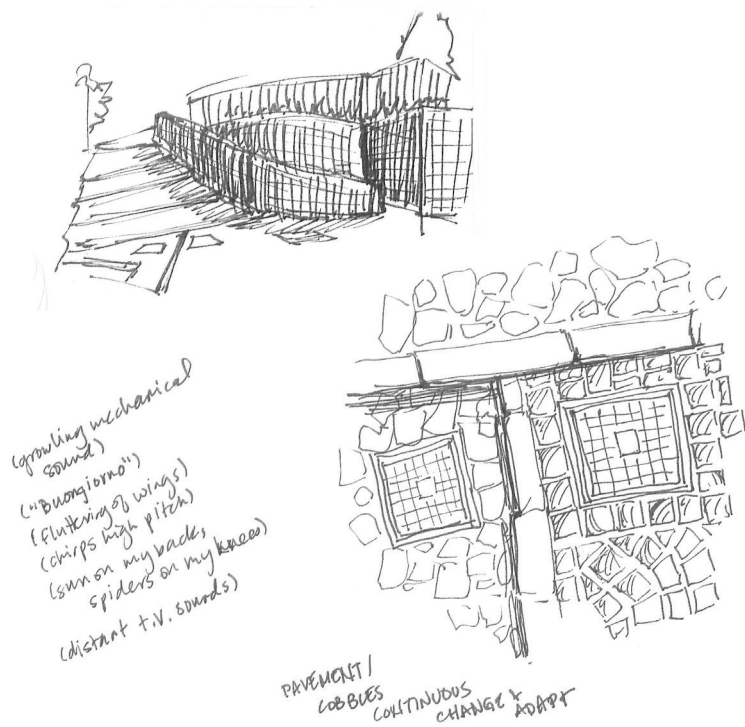 (growling mechanical
sound)
("Buongiorno")
(fluttering of wings)
(chirps high pitch)
(sun on my back,
spiders on my knees)
(distant t.v. sounds)
PAVEMENT/
COBBLES
CONTINUOUS
CHANGE + ADAPT